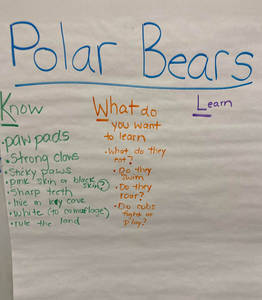 Polar Bears
Know
• paw pads
• Strong claws
• Sticky paws
• pink skin or black skin?
• Sharp teeth
• live in cove
• white (to camoflage)
• rule the land
What do
you want
to learn
• What do they
eat?
• Do they
swim
• Do they
roar?
• Do cubs
fight or
play?
Learn